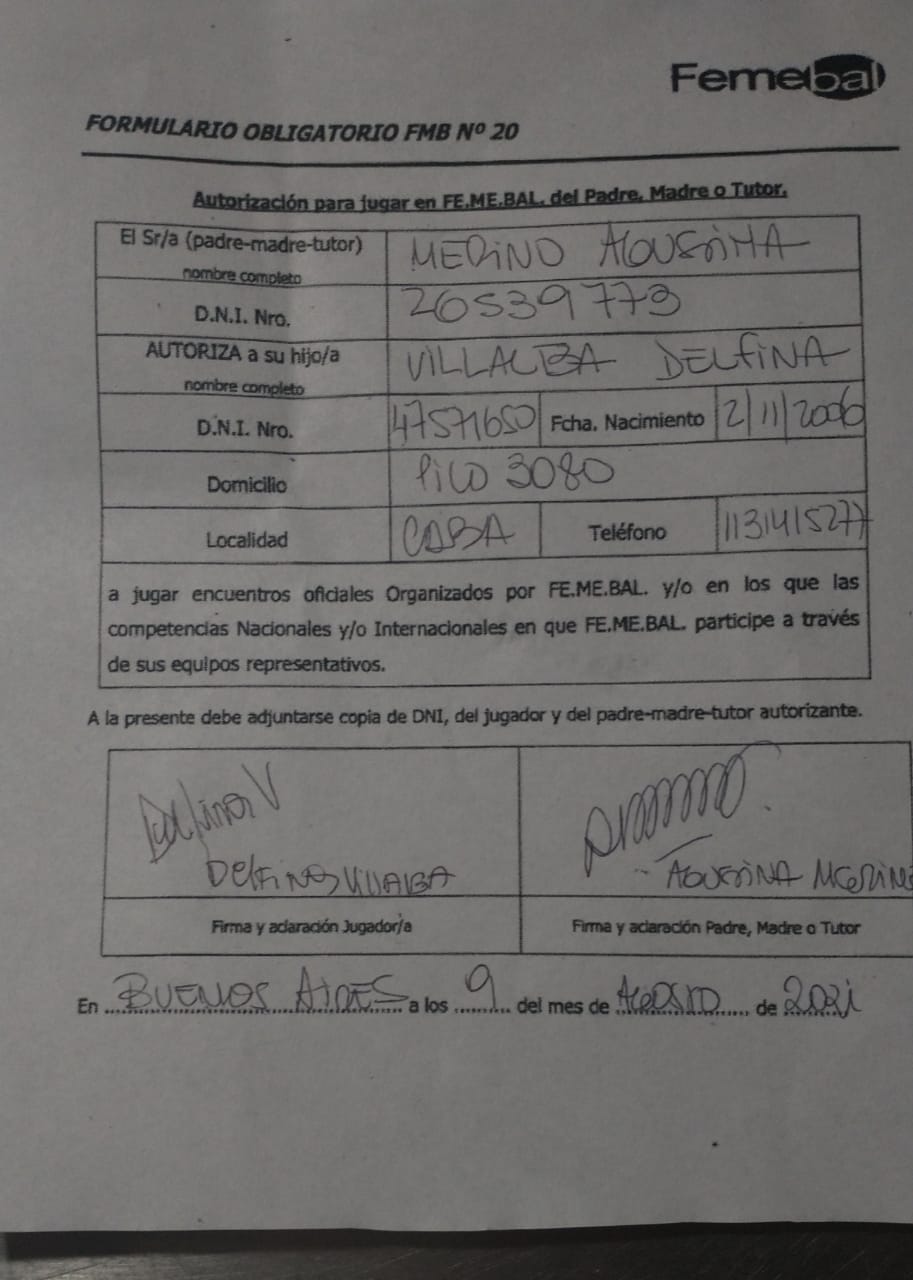 Femebal
FORMULARIO OBLIGATORIO FMB Nº 20
Autorización para jugar en FE.ME.BAL. del Padre, Madre o Tutor.
El Sr/a (padre-madre-tutor) nombre completo MERINO AGUSTINA
D.N.I. Nro. 26539773
AUTORIZA a su hijo/a nombre completo VILLALBA DELFINA
D.N.I. Nro. 47571650 Fcha. Nacimiento 2/11/2006
Domicilio PICO 3080
Localidad CABA Teléfono 1131415277
a jugar encuentros oficiales Organizados por FE.ME.BAL. y/o en los que las
competencias Nacionales y/o Internacionales en que FE.ME.BAL. participe a través
de sus equipos representativos.
A la presente debe adjuntarse copia de DNI, del jugador y del padre-madre-tutor autorizante.
Delfina V
DELFINA VILLALBA AGUSTINA MERINO
Firma y aclaración Jugador/a Firma y aclaración Padre, Madre o Tutor
En BUENOS AIRES a los 9 del mes de AGOSTO de 2021